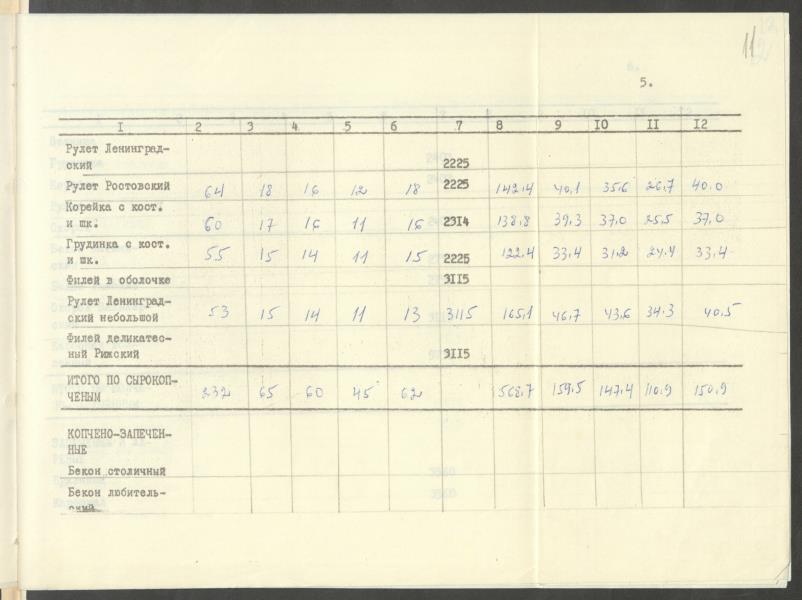 11
5.
I 2 3 4 5 6 7 8 9 IO II I2
Рулет Ленинград-
ский 2225
Рулет Ростовский 64 18 16 12 18 2225 142,4 40,1 35,6 26,7 40,0
Корейка с кост.
и шк. 60 17 16 11 16 2314 138,8 39,3 37,0 25,5 37,0
Грудинка с кост.
и шк. 55 15 14 11 15 2225 122,4 33,4 31,2 24,4 33,4
Филей в оболочке 3115
Рулет Ленинград-
ский небольшой 53 15 14 11 13 3115 165,1 46,7 43,6 34,3 40,5
Филей деликатес-
ный Рижский 3115
ИТОГО ПО СЫРОКОП-
ЧЕНЫМ 232 65 60 45 62 568,7 159,5 147,4 110,9 150,9
КОПЧЕНО-ЗАПЕЧЕН-
НЫЕ
Бекон столичный
Бекон любитель-
ский